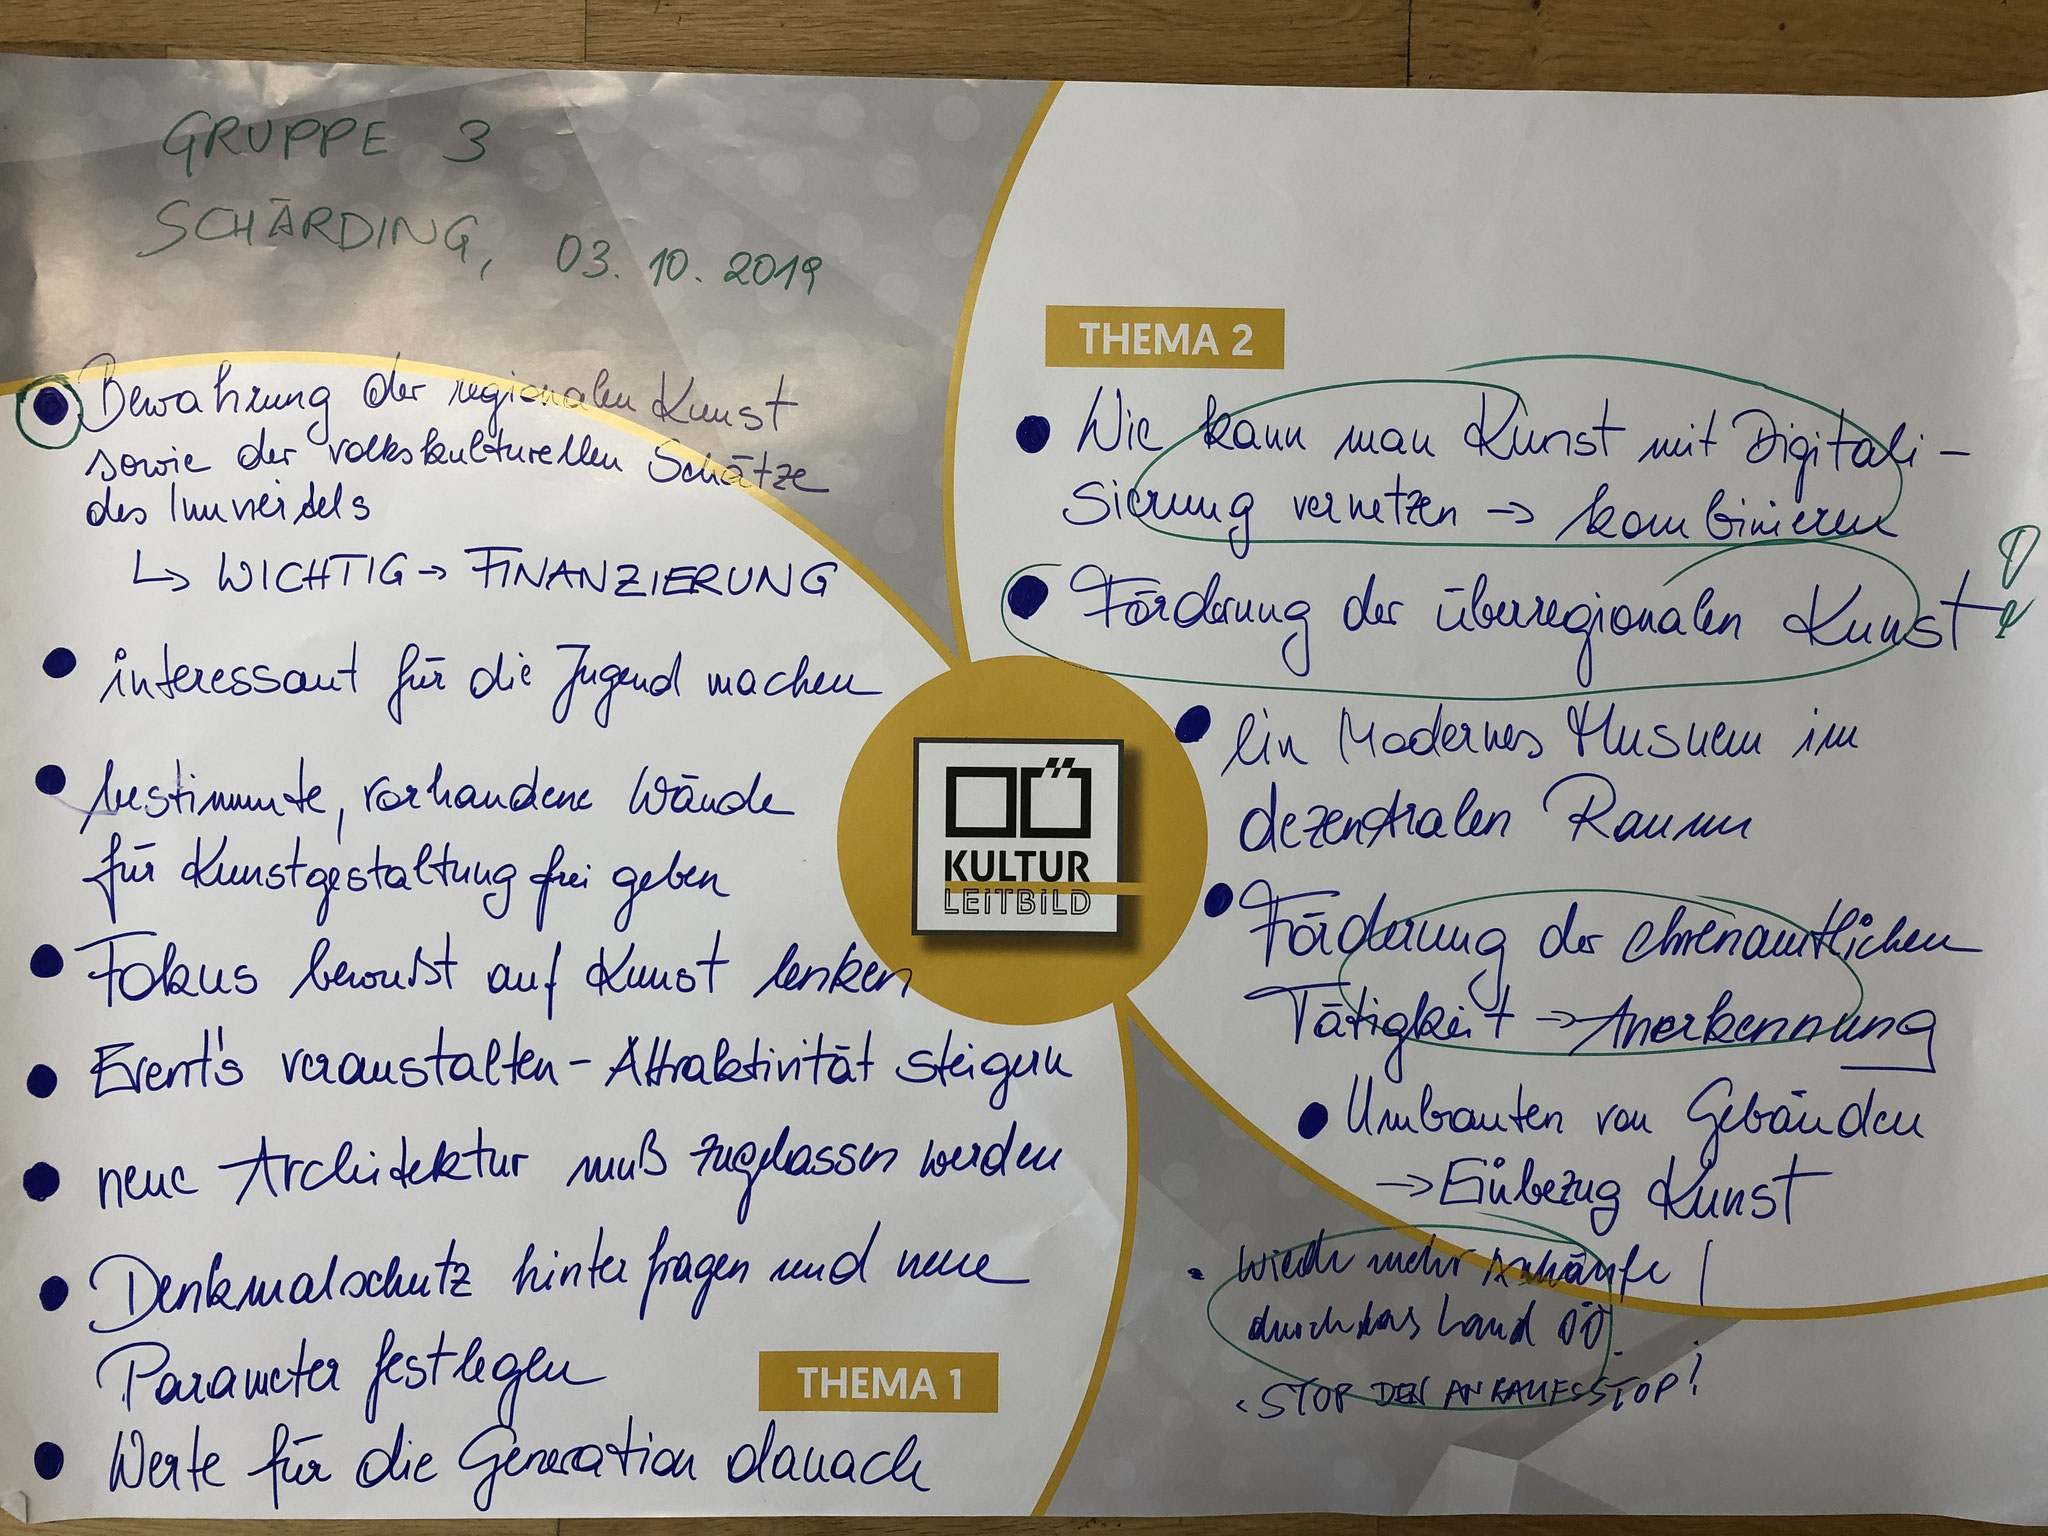 GRUPPE 3
SCHÄRDING, 03.10.2019
Bewahrung der regionalen Kunst
sowie der volkskulturellen Schätze
des Innviertels
↳ WICHTIG → FINANZIERUNG
interessant für die Jugend machen
bestimmte, vorhandene Wände
für Kunstgestaltung frei geben
Fokus bewußt auf Kunst lenken
Event's veranstalten - Attraktivität steigern
neue Architektur muß zugelassen werden
Denkmalschutz hinterfragen und neue
Parameter festlegen
THEMA 1
Werte für die Generation danach
OÖ
KULTUR
LEiTBiLD
THEMA 2
Wie kann man Kunst mit Digitali-
sierung vernetzen → kombinieren
Förderung der überregionalen Kunst
ein Modernes Museum im
dezentralen Raum
Förderung der ehrenamtlichen
Tätigkeit → Anerkennung
Umbauten von Gebäuden
→ Einbezug Kunst
Wieder mehr Ankäufe
durch das Land OÖ.
STOP DEN ANKAUFSSTOP!